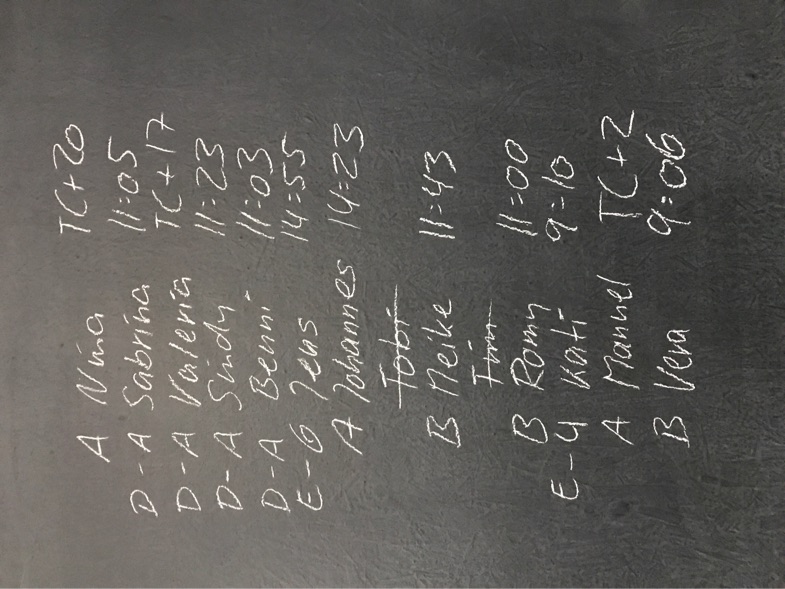 A Nina TC+20
D-A Sabrina 11:05
D-A Valeria TC+17
D-A Sindy 11:23
D-A Benni 11:03
E-6 Jens 14:55
A Johannes 14:23
Tobi
B Meike 11:43
Tim
B Romy 11:00
E-4 Kati 9:10
A Manuel TC+2
B Vera 9:06